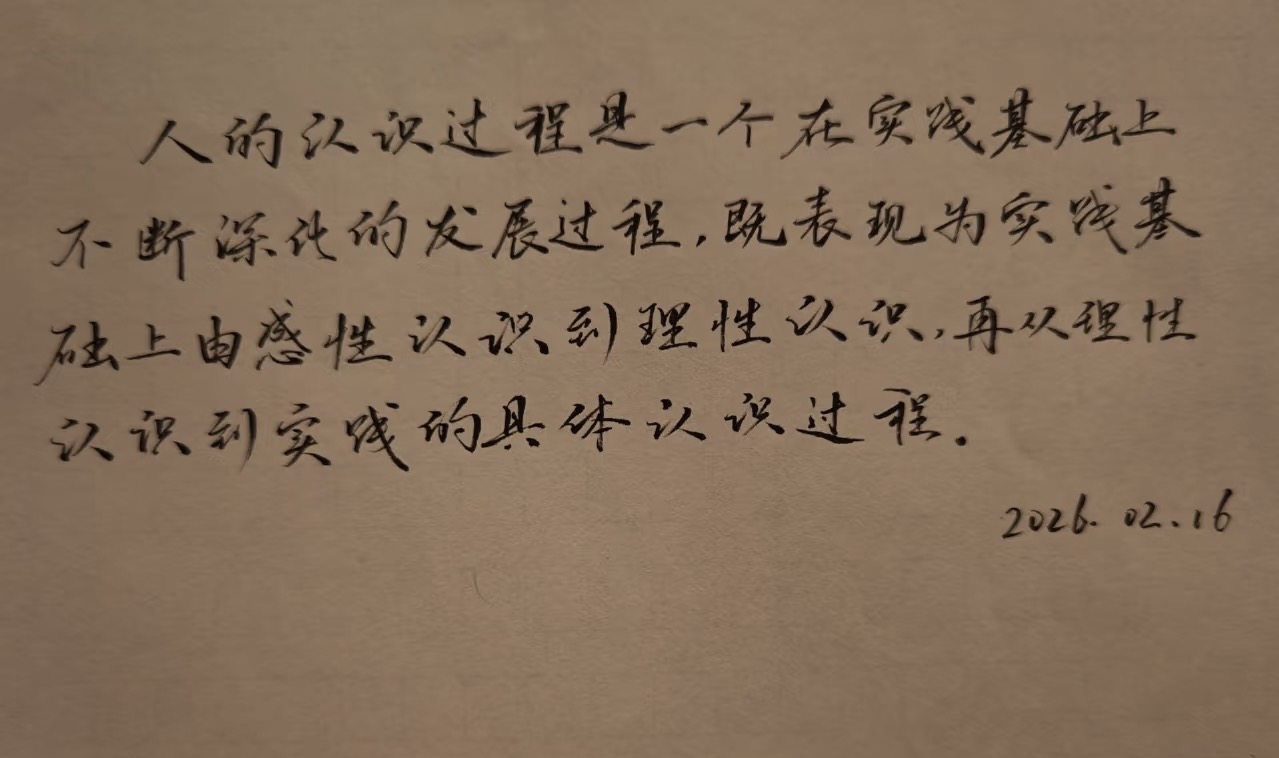 人的认识过程是一个在实践基础上
不断深化的发展过程,既表现为实践基
础上由感性认识到理性认识,再从理性
认识到实践的具体认识过程.
2026.02.16